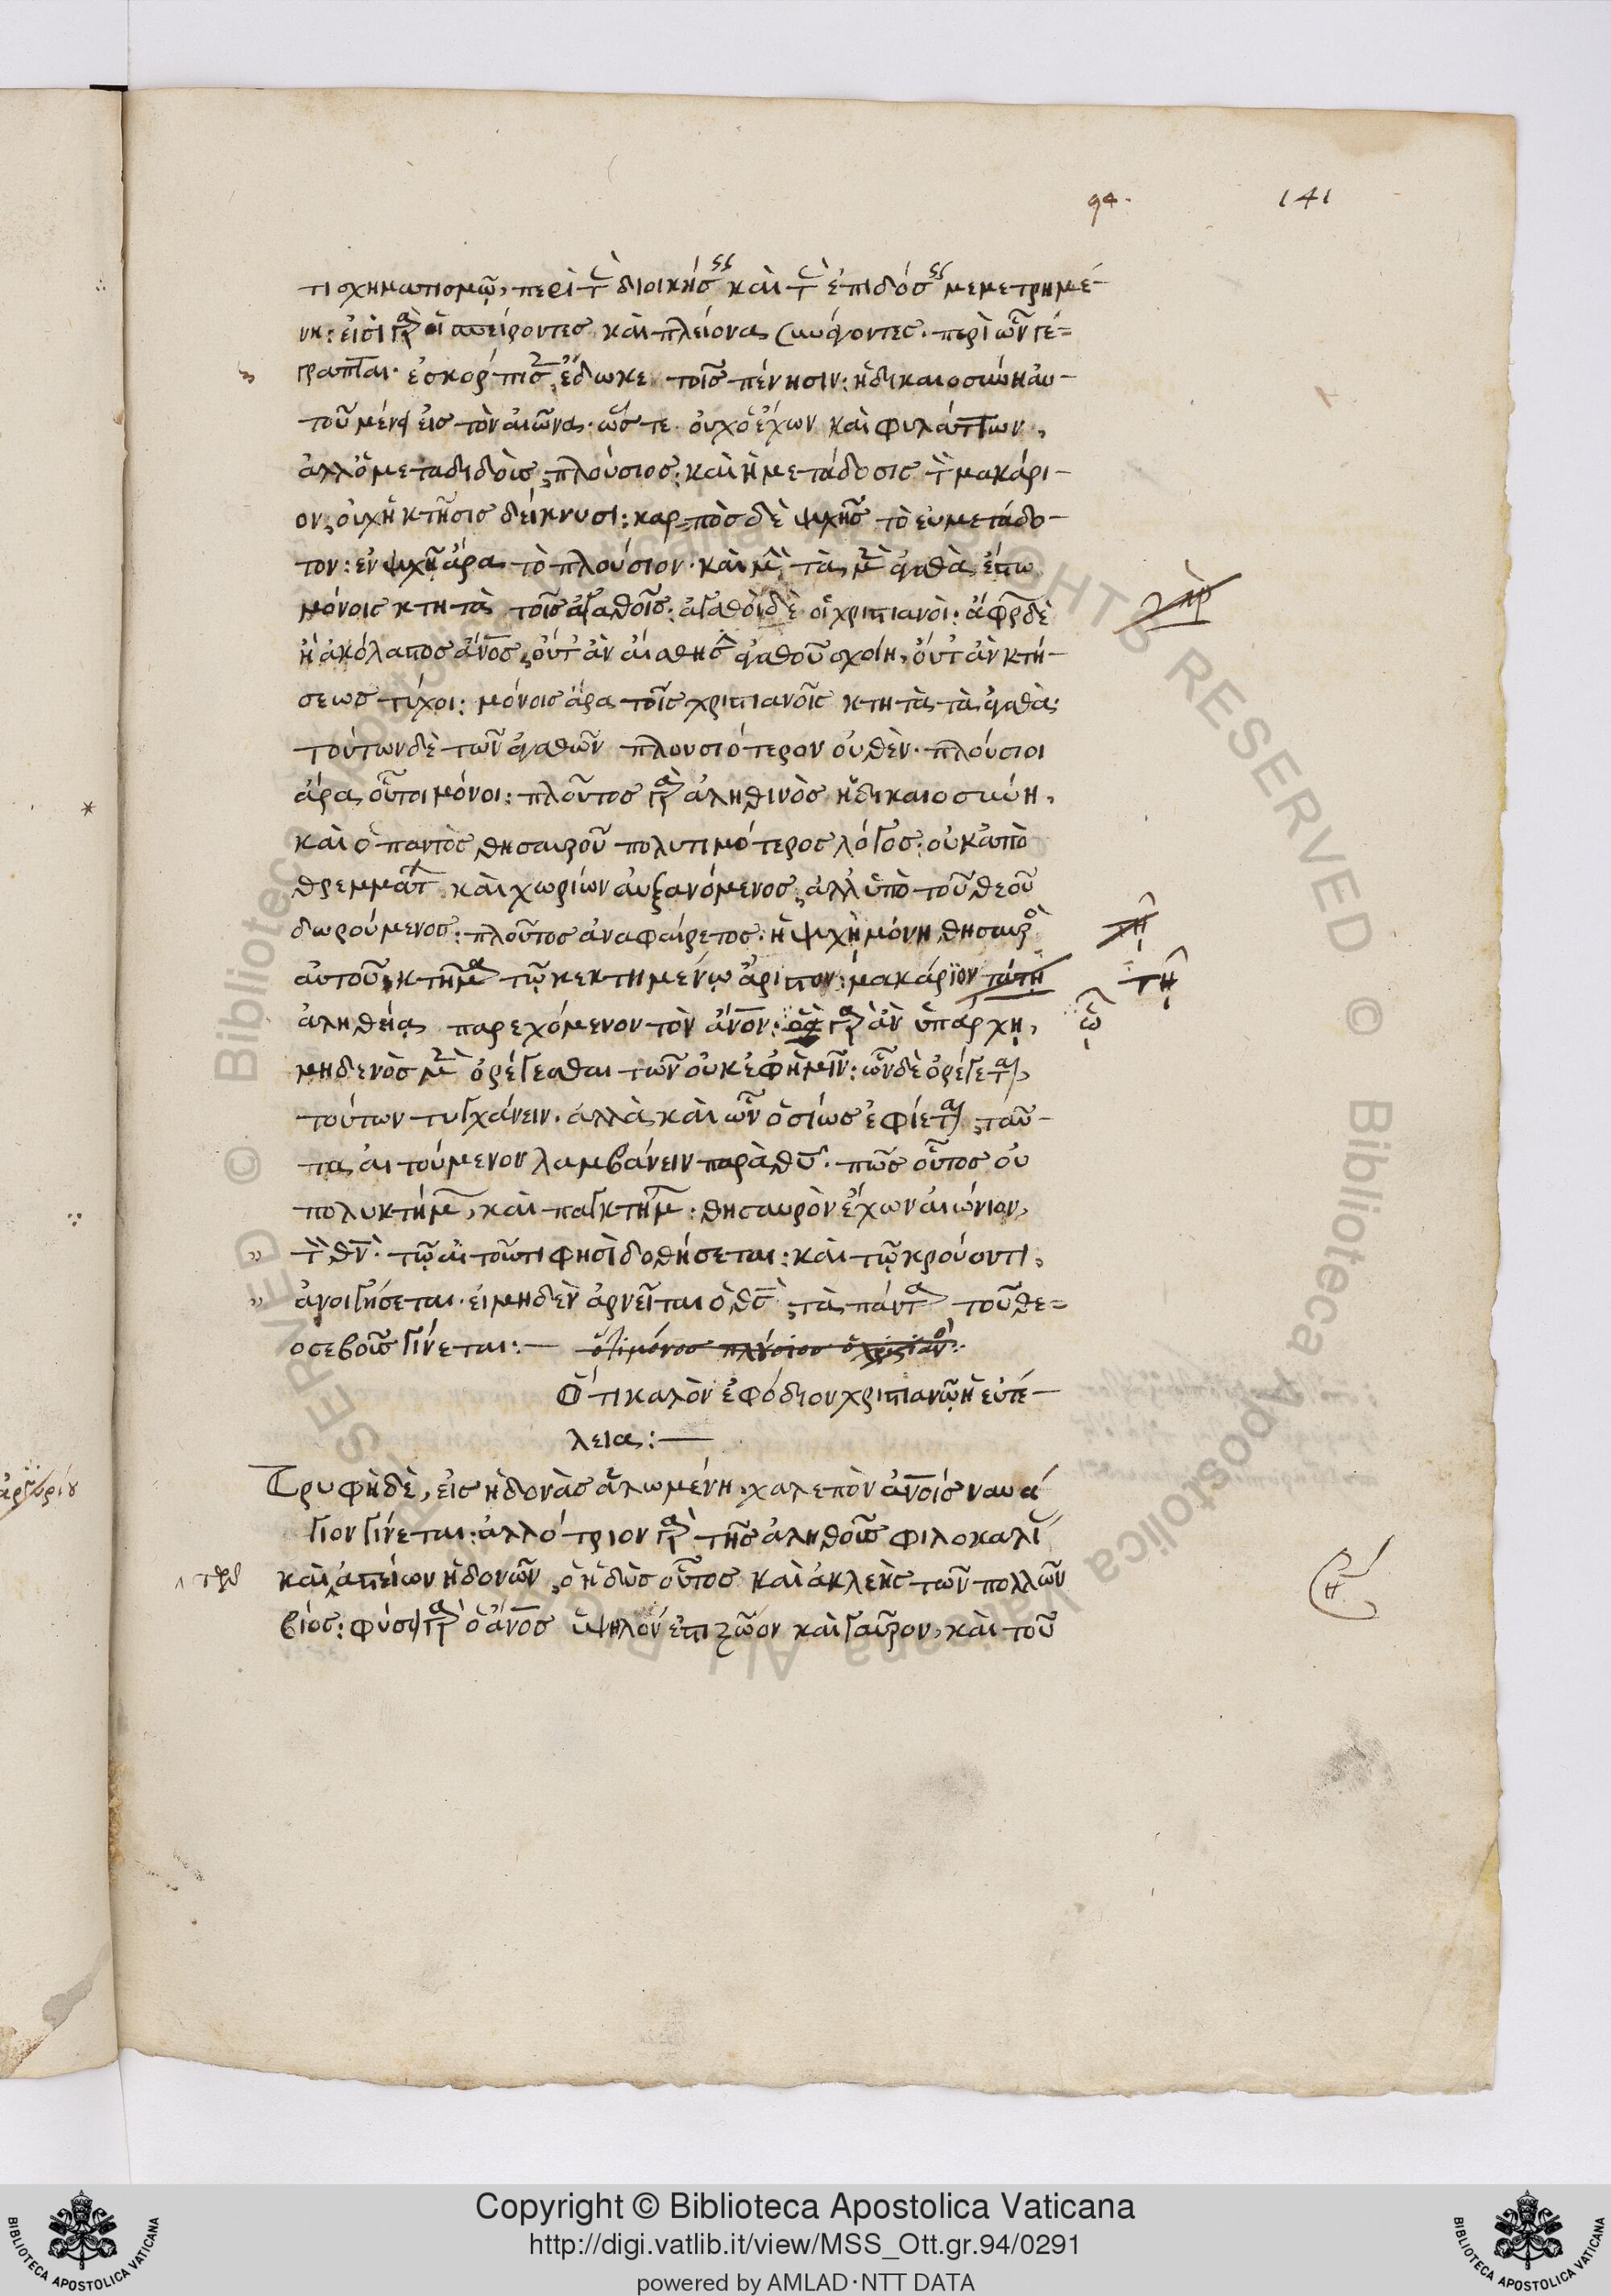 94. 141
τισχηματισμῷ, περὶ τ διοικήσ καὶ τ ἐπιδόσ μεμετρημέ-
νη: εἰσὶ γὰρ οἱ σπείροντες καὶ πλείονα συνάγοντες. περὶ ὧν γέ=
γραπται. ἐσκόρπισ, ἔδωκε τοῖς πένησιν: ἡ δικαιοσύνη αυ-
τοῦ μένει εἰς τὸν αἰῶνα. ὥστε οὐχ ὁ ἔχων καὶ φυλάττων,
ἀλλ ὁ μεταδιδοὺς, πλούσιος: καὶ ἡ μετάδοσις τ μακάρι-
ον, οὐχ ἡ κτῆσις δείκνυσι: καρπὸς δὲ ψυχῆς τὸ εὐμετάδο-
τον: ἐν ψυχῇ ἄρα τὸ πλούσιον. καὶ μὴν τὰ μὲν ἀγαθὰ, ἔστω
μόνοις κτητὰ τοῖς ἀγαθοῖς: ἀγαθοὶ δὲ οἱ χριστιανοὶ: ἄφρ δὲ γὰρ
ἢ ἀκόλαστος ἄνος, οὔτ ἂν αἴσθησ ἀγαθοῦ σχοίη, οὔτ ἂν κτή-
σεως τύχοι: μόνοις ἄρα τοῖς χριστιανοῖς κτητὰ τὰ ἀγαθὰ:
τούτων δὲ τῶν ἀγαθῶν πλουσιότερον οὐθὲν. πλούσιοι
ἄρα οὗτοι μόνοι: πλοῦτος γὰρ ἀληθινὸς ἡ δικαιοσύνη,
καὶ ὁ παντὸς θησαυροῦ πολυτιμότερος λόγος: οὐκ ἀπὸ
θρεμμάτ καὶ χωρίων αὐξανόμενος, ἀλλ ὑπὸ τοῦ θεοῦ
δωρούμενος: πλοῦτος ἀναφαίρετος. ἡ ψυχὴ μόνη θησαυρὸ τῇ
αὐτοῦ, κτῆμα τῷ κεκτημένῳ ἄριστον: μακάριον ταύτῃ τῇ
ἀληθείᾳ παρεχόμενον τὸν ἄνον: γὰρ ἂν ὑπάρχῃ, ᾧ
μηδενὸς μὲν ὀρέγεσθαι τῶν οὐκ ἐφ ἡμῖν: ὧν δὲ ὀρέγεται,
τούτων τυγχάνειν. ἀλλὰ καὶ ὧν ὁσίως ἐφίεται, ταῦ-
τα αἰτούμενον λαμβάνειν παρὰ θῦ. πῶς οὗτος οὐ
πολυκτήμ, καὶ παγκτήμ: θησαυρὸν ἔχων αἰώνιον,
τ θν. τῷ αἰτοῦντι φησὶ δοθήσεται: καὶ τῷ κρούοντι,
ἀνοιγήσεται. εἰ μηδὲν ἀρνεῖται ὁ θς, τὰ πάντα τοῦ θε=
οσεβοῦς γίνεται:— ὅτι μόνος πλούσιος ὁ χριστιανὸ:
Ὅτι καλὸν ἐφόδιον χριστιανῷ ἡ εὐτέ-
λεια:—
Τρυφὴ δὲ, εἰς ἡδονὰς ἁλωμένη, χαλεπὸν ἀνοις ναυά
γιον γίνεται: ἀλλότριον γὰρ τῆς ἀληθοῦς φιλοκαλί
καὶ ἀστείων ἡδονῶν, ὁ ἡδὺς οὗτος καὶ ἀκλεὴς τῶν πολλῶν
βίος: φύσει γὰρ ὁ ἄνος ὑψηλόν ἐστι ζῶον καὶ γαῦρον, καὶ τοῦ
Copyright © Biblioteca Apostolica Vaticana
http://digi.vatlib.it/view/MSS_Ott.gr.94/0291
powered by AMLAD·NTT DATA